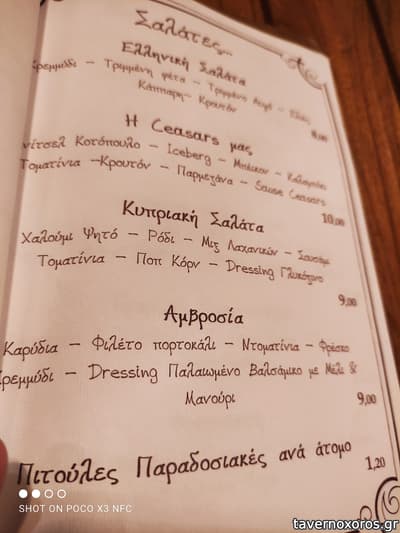 Σαλάτες...
Ελληνική Σαλάτα
Κρεμμύδι - Τριμμένη φέτα - Τριμμένο Αυγό - Ελιές
Κάππαρη- Κρουτόν
8,00
Η Ceasars μας
νίτσελ Κοτόπουλο - Iceberg - Μπέικον - Καλαμπόκι
Τοματίνια -Κρουτόν - Παρμεζάνα - Sause Ceasars
10,00
Κυπριακή Σαλάτα
Χαλούμι Ψητό - Ρόδι - Μιξ Λαχανικών - Σουσάμι
Τοματίνια - Ποπ Κόρν - Dressing Γλυκόξινο
9,00
Αμβροσία
Καρύδια - Φιλέτο πορτοκάλι - Ντοματίνια - Φρέσκο
Κρεμμύδι - Dressing Παλαιωμένο Βαλσάμικο με Μέλι &
Μανούρι
9,00
Πιτούλες Παραδοσιακές ανά άτομο
1,20
SHOT ON POCO X3 NFC
tavernoxoros.gr